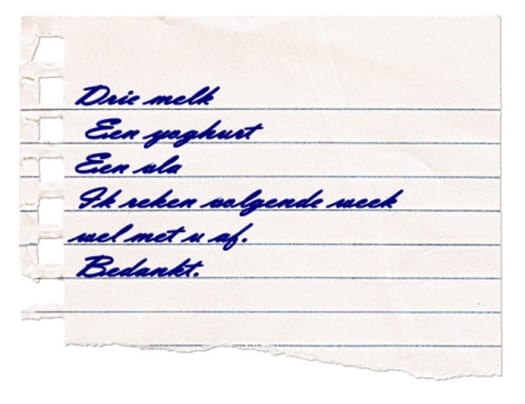 Drie melk
Een yoghurt
Een vla
Ik reken volgende week
wel met u af.
Bedankt.